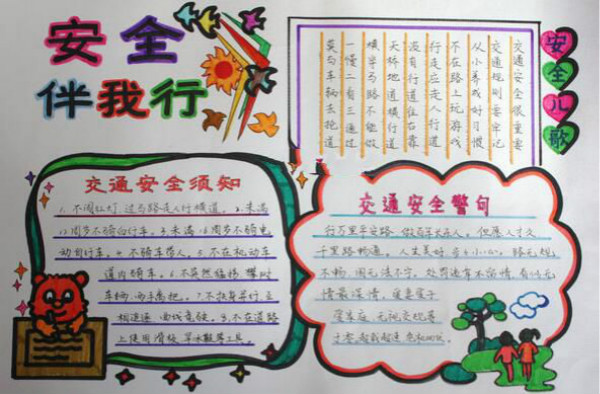 安全
伴我行
安全儿歌
交通安全很重要
交通规则要牢记
从小养成好习惯
不在路上玩游戏
行走应走人行道
没有行道往右靠
天桥地道横行道
横穿马路不能做
一慢二看三通过
莫与车辆去抢道
交通安全须知
1.不闯红灯 过马路走人行横道。2.未满
12周岁不骑自行车。3.未满16周岁不骑电
动自行车。4.不骑车带人。5.不在机动车
道内骑车。6.不突然猛拐、攀附
车辆、两手离把。7.不扶身并行、互
相追逐、曲线竞驶。8.不在道路
上使用滑板、旱冰鞋等工具。
交通安全警句
行万里平安路 做百年长乐人 但愿人长久
千里路畅通。人生美好 步步小心。路无规
不畅，国无法不宁。处罚违章不留情 看似无
情最深情。爱妻爱子
爱家庭 无视交规等
于零